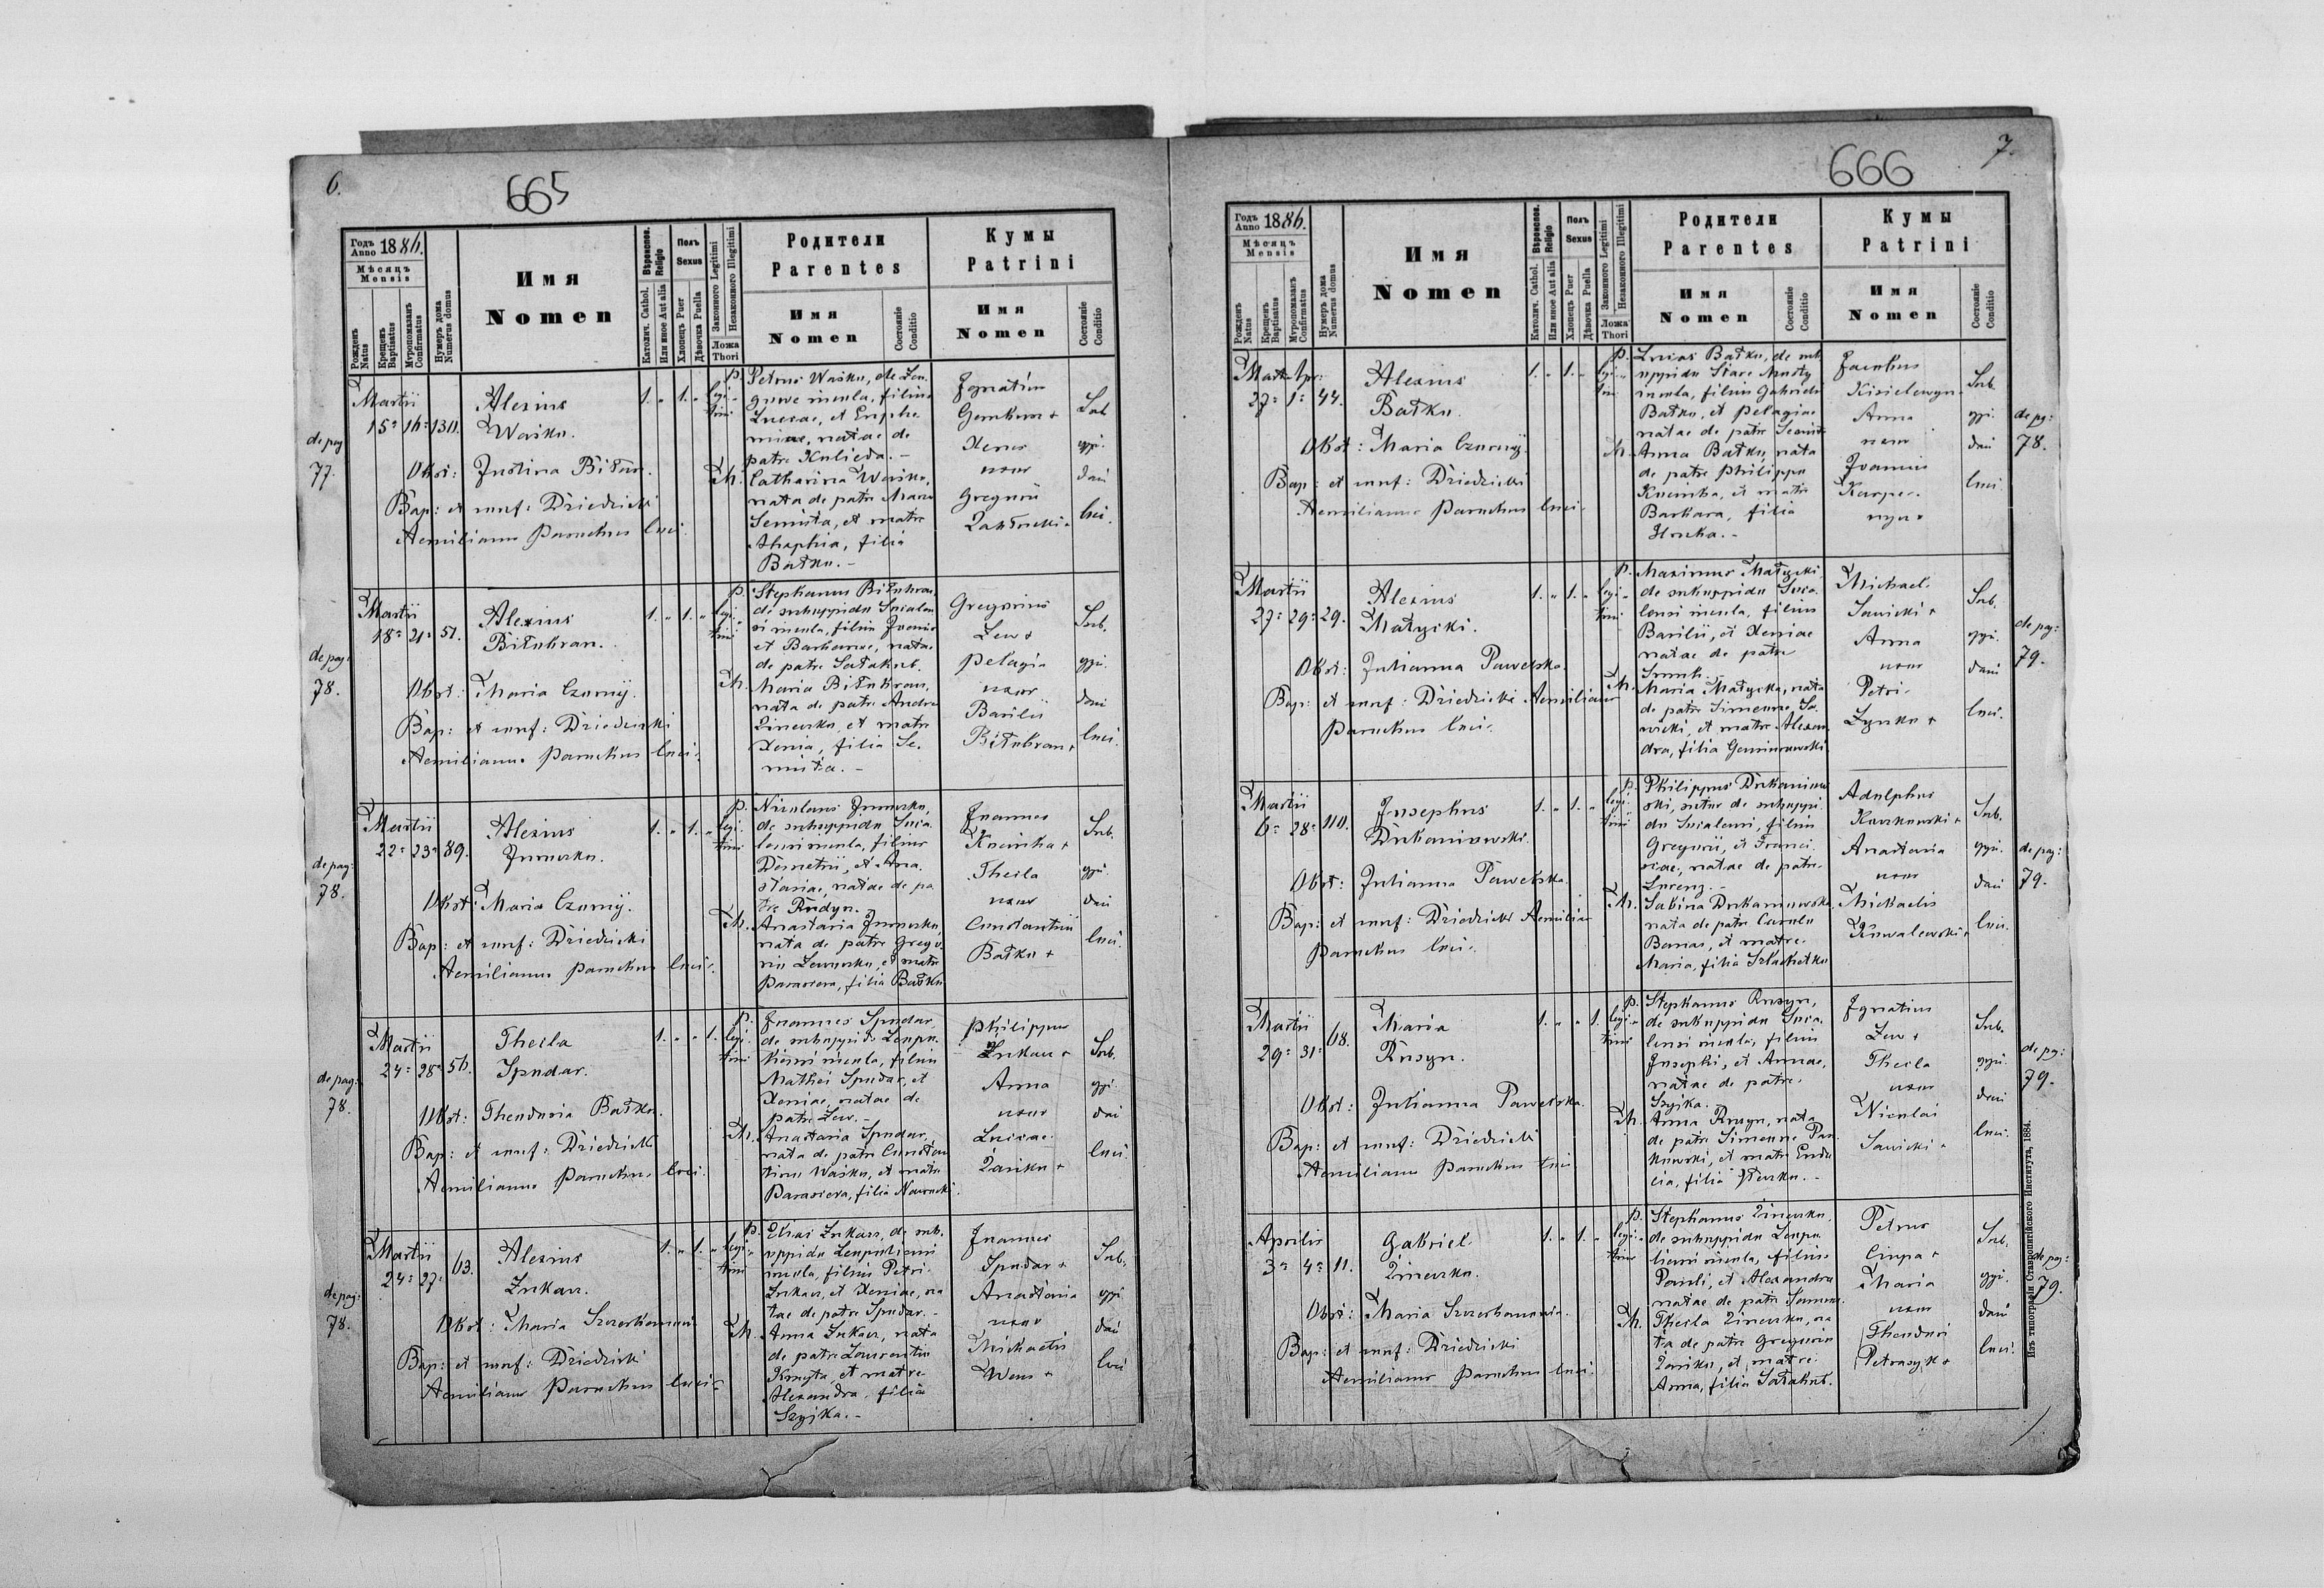 6.
665
Годъ Anno 1886.
Мѣсяць Mensis
Рожденъ Natus
Крещенъ Baptisatus
Мѵропомазанъ Confirmatus
Нумеръ дома Numerus domus
Имя
Nomen
Вѣроиспов. Religio
Католич. Cathol.
Или иное Aut alia
Полъ Sexus
Хлопецъ Puer
Дѣвочка Puella
Законного Legitimi
Незаконного Illegitimi
Ложа Thori
Родители
Parentes
Имя
Nomen
Состояніе Conditio
Кумы
Patrini
Имя
Nomen
Состояніе Conditio
de pag
77.
Martii
15ª 16ª 130.
Alexius
Waśko.
Obst: Justina Biłan.
Bap: et conf: Dziedzicki
Aemilianus Parochus loci.
1. „ 1. „
legitimi
P. Petrus Waśko, de
incola, filius
Lucae, et Euphe
miae, natae de
patre Kulieda. –
M. Catharina Waśko,
nata de patre Marco
Semuta, et matre
Ahaphia, filia
Bałko. –
Ignatius
+
uxor
Gregorii
+
Sub
opi
dani
loci.
de pag:
78.
Martii
18ª 21ª 51.
Alexius
Biłobran.
Obst: Maria Czornÿ.
Bap: et conf: Dziedzicki
Aemilianus Parochus loci.
1. „ 1. „
legitimi
P. Stephanus Biłobran,
de suboppido Socalen
si incola, filius Joannis
et Barbarae, natae
de patre Sałahub.
M. Maria Biłobran,
nata de patre Andrea
Zinewko, et matre
Xenia, filia Se-
muta. –
Gregorius
Lew +
Pelagia
uxor
Basilii
Biłobran +
Sub.
opi
dani
loci.
de pag:
78.
Martii
22ª 23ª 89.
Alexius
Obst: Maria Czornÿ.
Bap: et conf: Dziedzicki
Aemilianus Parochus loci.
1. „ 1. „
legitimi
P. Nicolaus
de suboppido Soca-
lensi incola, filius
Demetrii, et Ana-
stasiae, natae de pa
tre Rudyn.
M. Anastasia
nata de patre Grego-
rio et matre
Parasceva, filia Bałko
Joannes
Kocimba +
Thecla
uxor
Constantini
Bałko +
Sub.
opi.
dani
loci.
de pag:
78.
Martii
24ª 28ª 56.
Thecla
Spodar.
Obst: Theodosia Bałko.
Bap: et conf: Dziedzicki
Aemilianus Parochus loci.
1. „ „ 1.
legitimi
P. Joannes Spodar,
de suboppido
incola, filius
Mathei Spodar, et
Xeniae, natae de
patre Lew. –
M. Anastasia Spodar,
nata de patre Constan
tino Waśko, et matre
Parasceva, filia Nawrocki.
Philippus
Lukacz +
Anna
uxor
Lucae
Zańko +
Sub.
opi.
dai
loci.
de pag:
78.
Martii
24ª 27ª 63.
Alexius
Lukacz.
Obst: Maria
Bap: et conf: Dziedzicki
Aemilianus Parochus loci.
1. „ 1. „
legitimi
P. Elias Lukacz, de sub-
oppido
incola, filius Petri
Lukacz, et Xeniae, na
tae de patre Spodar. –
M. Anna Lukacz, nata
de patre Laurentio
Kmyta, et matre
Alexandra, filia
Szyjka. –
Joannes
Spodar +
Anastasia
uxor
Michaelis
+
Sub.
opi
dai
loci
7.
666
Годъ Anno 1886.
Мѣсяць Mensis
Рожденъ Natus
Крещенъ Baptisatus
Мѵропомазанъ Confirmatus
Нумеръ дома Numerus domus
Имя
Nomen
Вѣроиспов. Religio
Католич. Cathol.
Или иное Aut alia
Полъ Sexus
Хлопецъ Puer
Дѣвочка Puella
Законного Legitimi
Незаконного Illegitimi
Ложа Thori
Родители
Parentes
Имя
Nomen
Состояніе Conditio
Кумы
Patrini
Имя
Nomen
Состояніе Conditio
Mart. Apr:
27ª 1ª 44.
Alexius
Bałko.
Obst: Maria Czornÿ.
Bap: et conf: Dziedzicki
Aemilianus Parochus loci.
1. „ 1. „
legitimi
P. Lucas Bałko, de sub
oppido Stare Mosty
incola, filius Gabrielis
Bałko, et Pelagiae
natae de patre Semuta
M. Anna Bałko, nata
de patre Philippo
Kocimba, et matre
Barbara, filia
Hocka. –
Jacobus
Anna
uxor
Joannis
Sub.
opi.
dani
loci.
de pg:
78.
Martii
27ª 29ª 29.
Alexius
Matycki.
Obst: Julianna Pawelska.
Bap: et conf: Dziedzicki Aemilianus
Parochus loci.
1. „ 1. „
legitimi
P. Maximus Matycki,
de suboppido Soca-
lensi incola, filius
Basilii, et Xeniae
natae de patre
M. Maria Matycka, nata
de patre Simeone Sa-
wicki, et matre Alexan
dra, filia
Michael
Sawicki +
Anna
uxor
Petri
Zynko +
Sub.
opi.
dani
loci.
de pg:
79.
Martii
6ª 28ª 110.
Josephus
Drohaniowski.
Obst: Julianna Pawelska.
Bap: et conf: Dziedzicki Aemilian
Parochus loci.
1. „ 1. „
legitimi
P. Philippus Drohaniow
ski, sutor de suboppi
do Socalensi, filius
Gregorii, et Franci
scae, natae de patre
Lorenz. –
M. Sabina Drohaniowska,
nata de patre Carolo
Banas, et matre
Maria, filia Szlachetko
Adolphus
+
Anastasia
uxor
Michaelis
Kowalewski +
Sub.
opi.
dani
loci.
de pag:
79.
Martii
29ª 31ª 68.
Maria
Rusyn.
Obst: Julianna Pawelska.
Bap: et conf: Dziedzicki
Aemilianus Parochus loci
1. „ „ 1.
legitimi
P. Stephanus Rusyn,
de suboppido Soca-
lensi incola, filius
Josephi, et Annae,
natae de patre
Szyjka.
M. Anna Rusyn, nata
de patre Simeone Pan
kowski, et matre Eudo
cia, filia
Ignatius
Lew +
Thecla
uxor
Nicolai
Sawicki +
Sub.
opi.
dani
loci.
de pg:
79.
Aprilis
3ª 4ª 11.
Gabriel
Zinewko.
Obst: Maria
Bap: et conf: Dziedzicki
Aemilianus Parochus loci.
1. „ 1. „
legitimi
P. Stephanus Zinewko,
de suboppido
incola, filius
Pauli, et Alexandra
natae de patre
M. Thecla Zinewko, na
ta de patre Gregorio
Zańko, et matre
Anna, filia Sałahub.
Petrus
Ciupa +
Maria
uxor
Theodori
Petrasyk +
Sub.
opi.
dani
loci.
de pag:
79.
Изъ типографіи Ставропигійского Института, 1884.